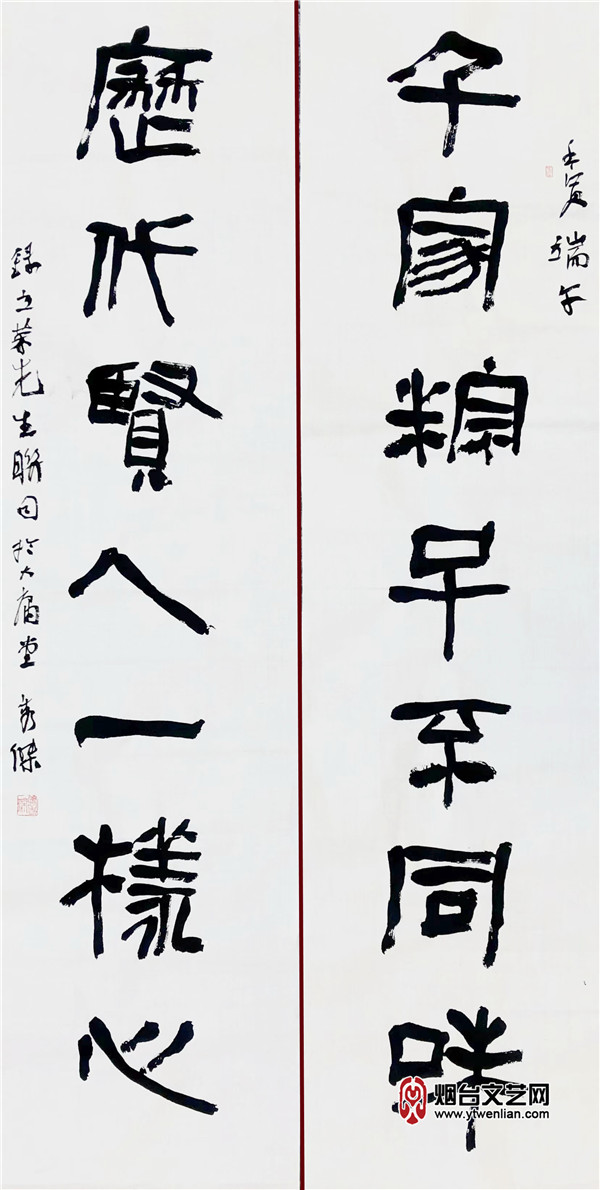 壬寅端午
千家粽子不同味
歷代賢人一樣心
録立荣先生聯句於大庸堂 秀傑
烟台文艺网
www.ytwenlian.com